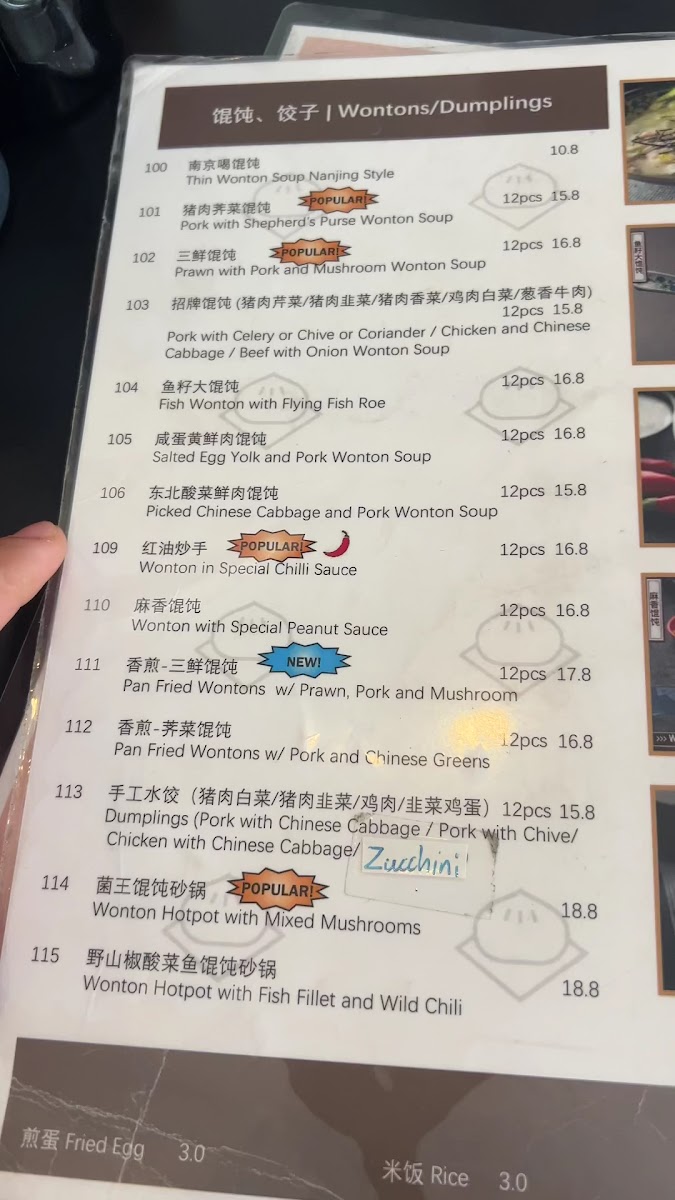 馄饨、饺子 | Wontons/Dumplings
100 南京喝馄饨 10.8
Thin Wonton Soup Nanjing Style
101 猪肉荠菜馄饨 POPULAR! 12pcs 15.8
Pork with Shepherd's Purse Wonton Soup
102 三鲜馄饨 POPULAR! 12pcs 16.8
Prawn with Pork and Mushroom Wonton Soup
103 招牌馄饨 (猪肉芹菜/猪肉韭菜/猪肉香菜/鸡肉白菜/葱香牛肉)
12pcs 15.8
Pork with Celery or Chive or Coriander / Chicken and Chinese
Cabbage / Beef with Onion Wonton Soup
104 鱼籽大馄饨 12pcs 16.8
Fish Wonton with Flying Fish Roe
105 咸蛋黄鲜肉馄饨 12pcs 16.8
Salted Egg Yolk and Pork Wonton Soup
106 东北酸菜鲜肉馄饨 12pcs 15.8
Picked Chinese Cabbage and Pork Wonton Soup
109 红油炒手 POPULAR! 12pcs 16.8
Wonton in Special Chilli Sauce
110 麻香馄饨 12pcs 16.8
Wonton with Special Peanut Sauce
111 香煎-三鲜馄饨 NEW! 12pcs 17.8
Pan Fried Wontons w/ Prawn, Pork and Mushroom
112 香煎-荠菜馄饨 12pcs 16.8
Pan Fried Wontons w/ Pork and Chinese Greens
113 手工水饺（猪肉白菜/猪肉韭菜/鸡肉/韭菜鸡蛋）12pcs 15.8
Dumplings (Pork with Chinese Cabbage / Pork with Chive/
Chicken with Chinese Cabbage/ Zucchini
114 菌王馄饨砂锅 POPULAR! 18.8
Wonton Hotpot with Mixed Mushrooms
115 野山椒酸菜鱼馄饨砂锅 18.8
Wonton Hotpot with Fish Fillet and Wild Chili
煎蛋 Fried Egg 3.0
米饭 Rice 3.0
鱼籽大馄饨
麻香馄饨
>>> W